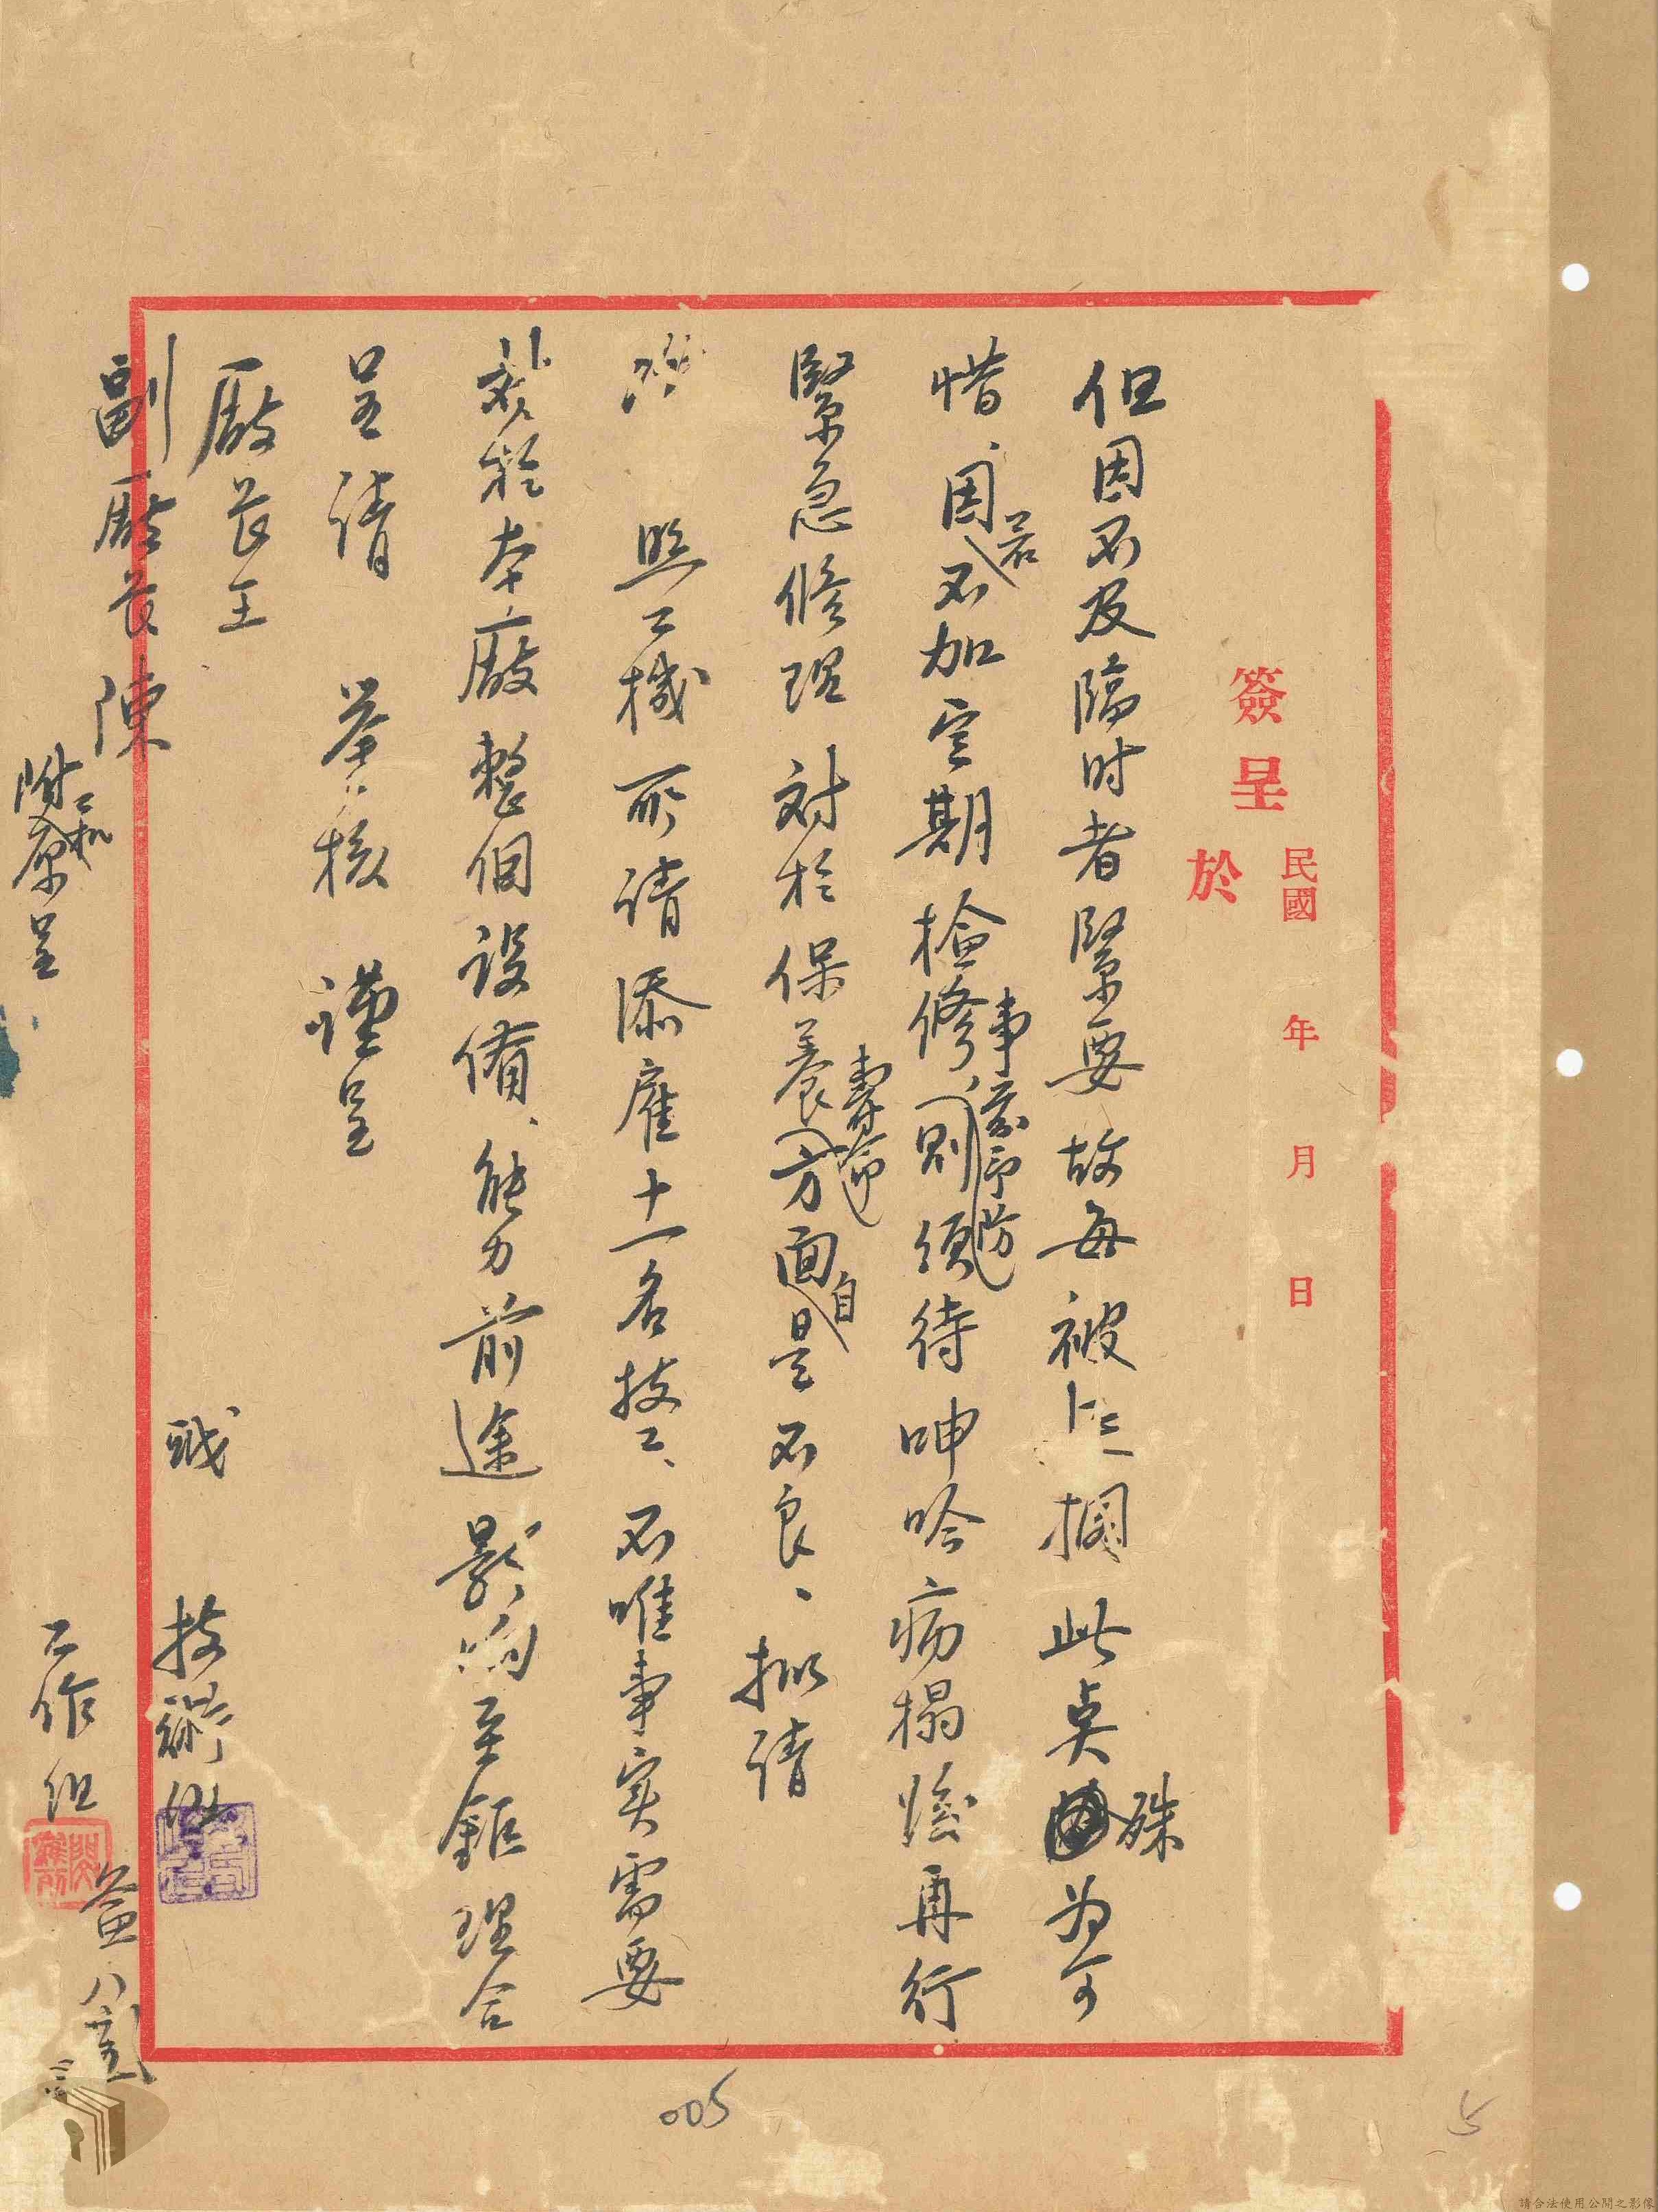 簽呈 於
民國 年 月 日
但因不及臨時者緊要故每被 擱此点殊为可
惜、因若不加定期檢修、事前予防則須待呻吟病榻後再行
緊急修理对於保養壽命方面自是不良、拟請
照工機所請添雇十一名技工、不唯事实需要
於本廠整個設備、能力前途影响至鉅理合
呈請 核 謹呈
廠長王
副廠長陳
附工机原呈
職 技術
工作组
005
5
請合法使用公開之影像